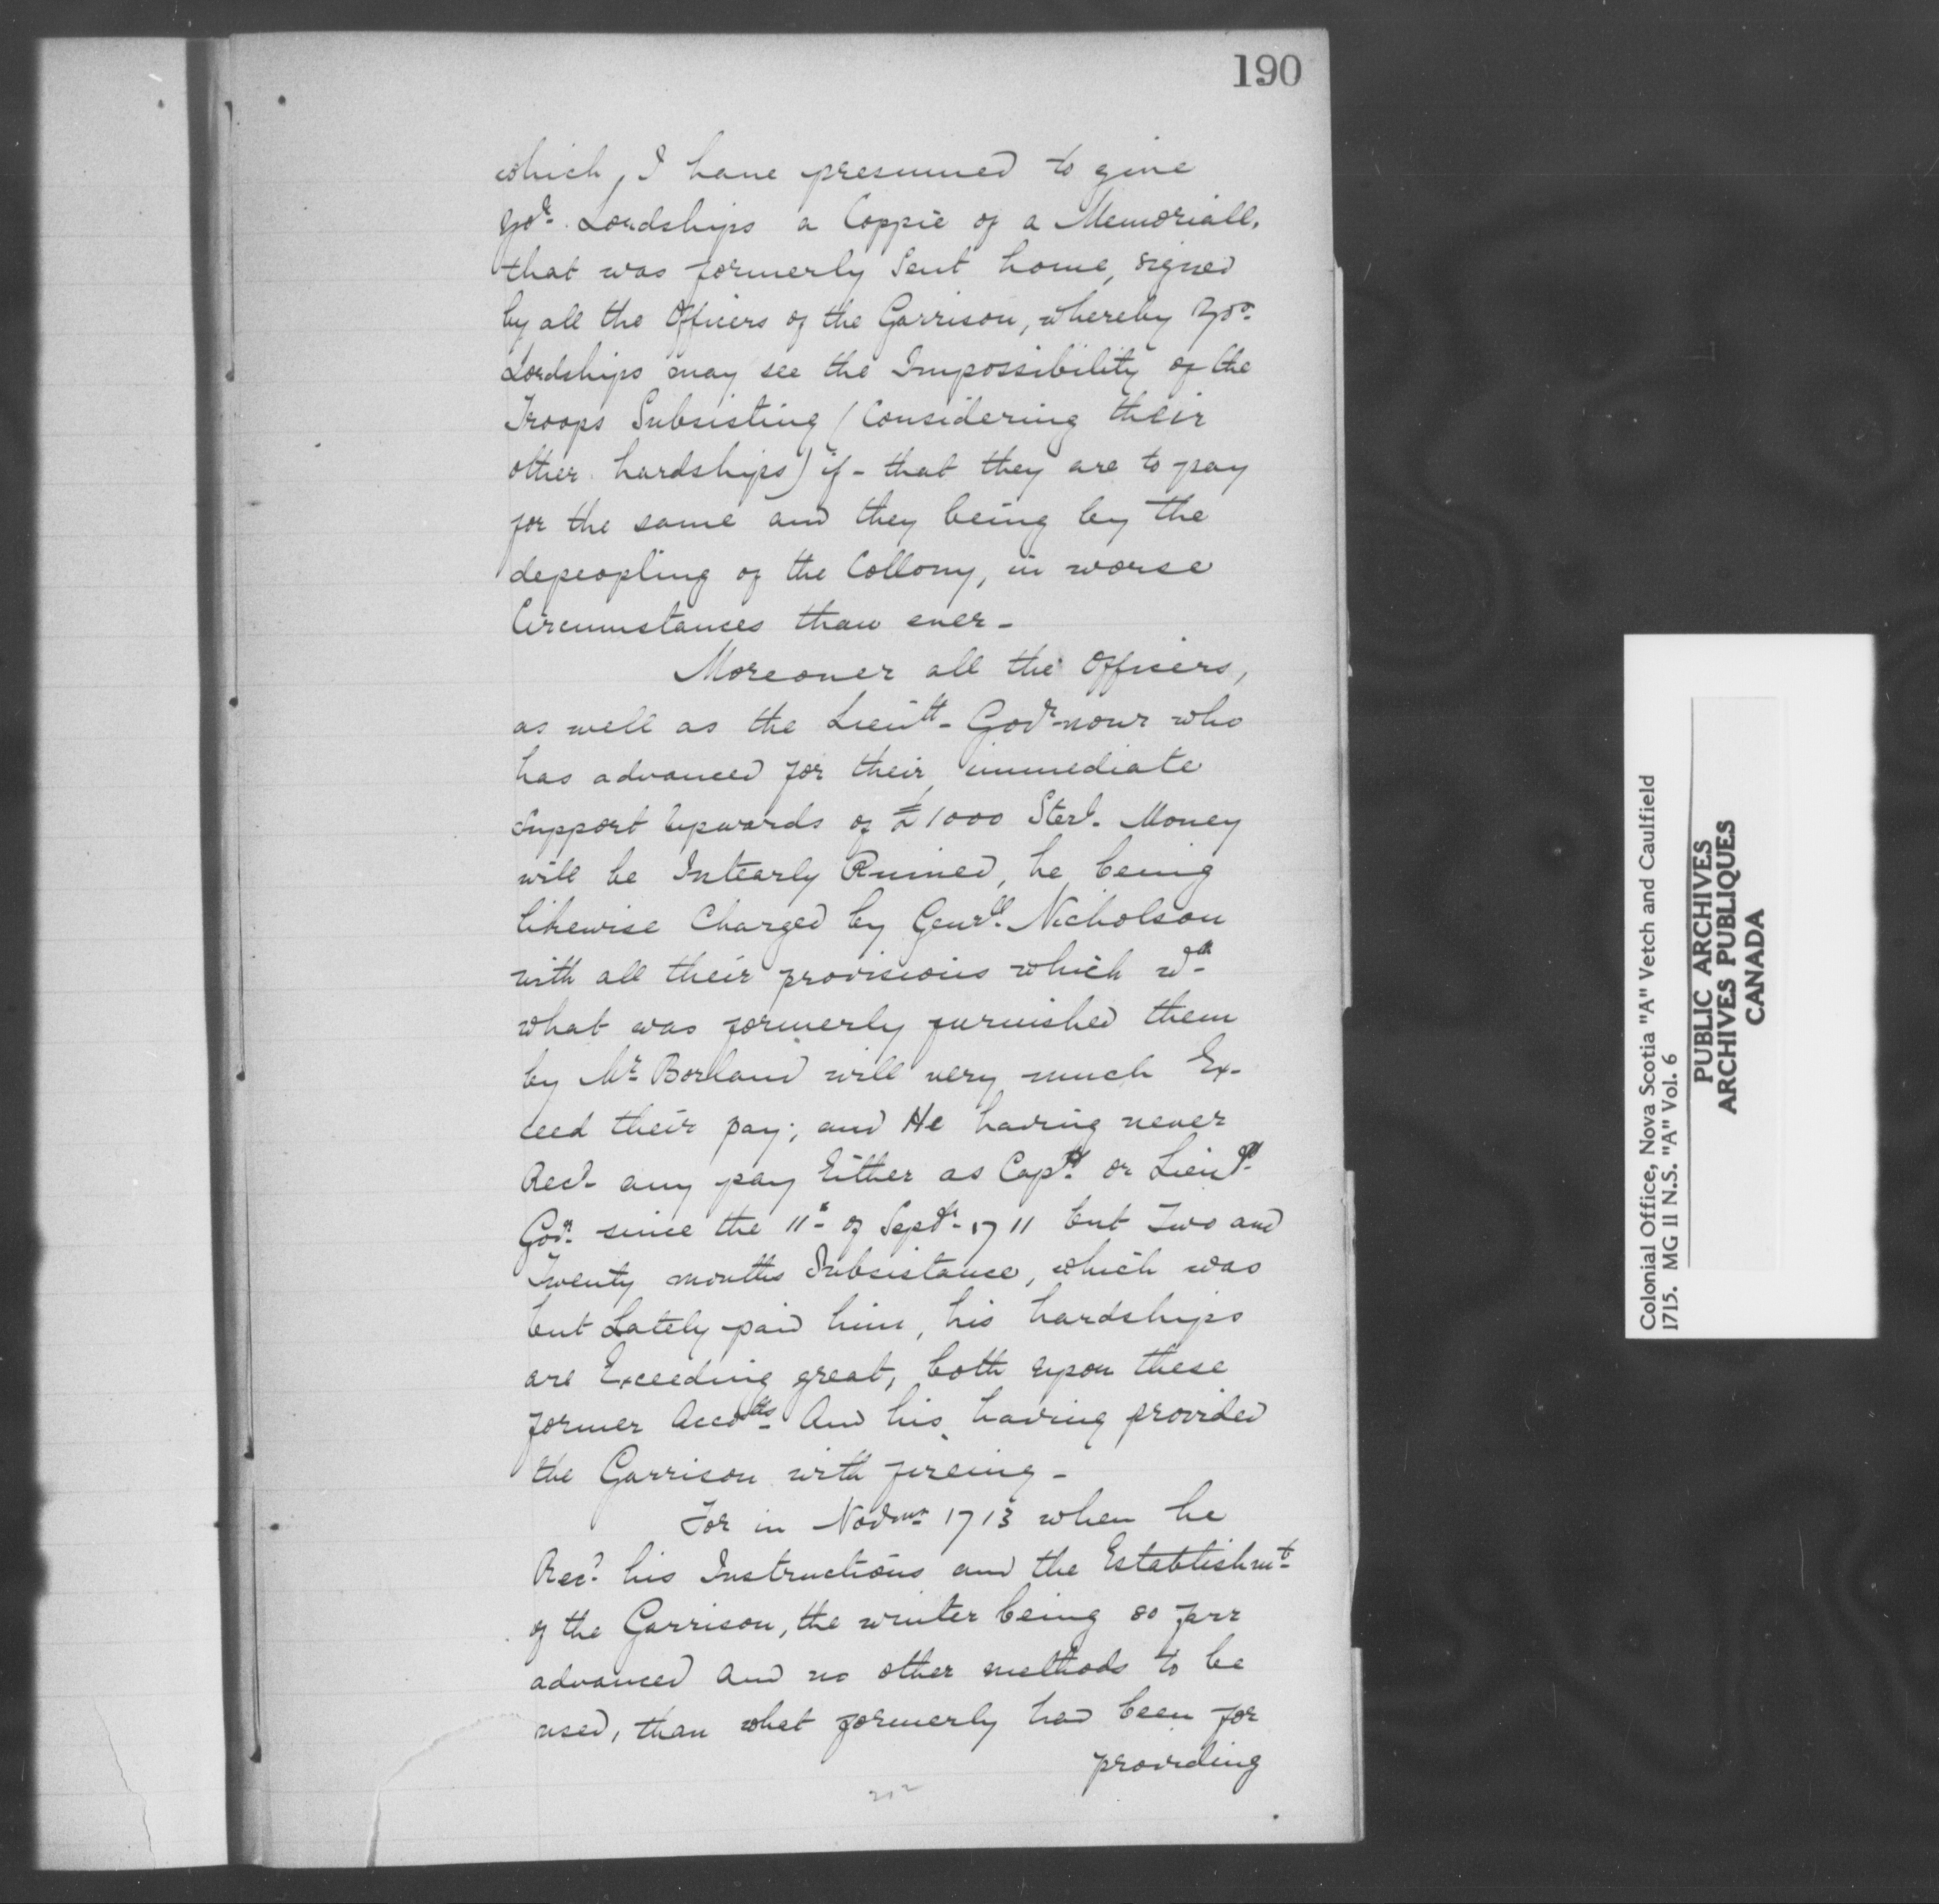 190
which, I have presumed to give
Yor. Lordships a Coppie of a Memoriall,
that was formerly Sent home, signed
by all the Officers of the Garrison, whereby Yor.
Lordships may see the Impossibility of the
Troops Subsisting (Considering their
other hardships) if - that they are to pay
for the same and they being by the
depeopling of the Collony, in worse
Circumstances than ever -
Moreover all the Officers,
as well as the Lieutt- Govr-nour who
has advanced for their immediate
Support Upwards of £1000 Sterl. Money
will be Intearly Ruined, he being
likewise Charged by Genrll. Nicholson
with all their provisions which wth
what was formerly furnished them
by Mr. Borland will very much Ex-
ceed their pay; and He having never
Recd any pay Either as Captt. or Lieutt.
Govr. since the 11th of Septr. 1711 but Two and
Twenty months Subsistance, which was
but Lately paid him, his hardships
are Exceeding great, both upon these
former Accotts. And his having provided
the Garrison with fireing -
For in Novmr 1713 when he
Recd. his Instructions and the Establishmt.
of the Garrison, the winter being so farr
advanced and no other methods to be
used, than what formerly had been for
providing
Colonial Office, Nova Scotia "A" Vetch and Caulfield
1715. MG 11 N.S. "A" Vol. 6
PUBLIC ARCHIVES
ARCHIVES PUBLIQUES
CANADA